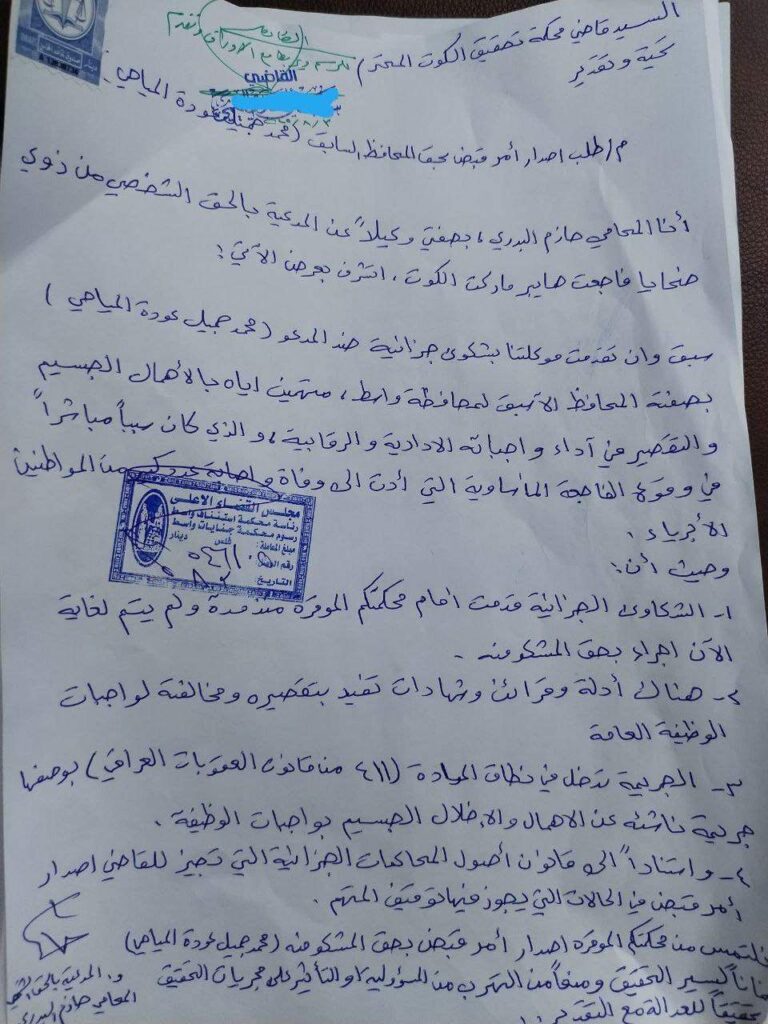 السيد قاضي محكمة تحقيق الكوت المحترم /
تحية وتقدير
القاضي
م/ طلب اصدار أمر قبض بحق المحافظ السابق (محمد جميل عودة المياحي)
أنا المحامي حازم البدري، بصفتي وكيلاً عن المدعية بالحق الشخصي من ذوي
ضحايا فاجعة هايبر ماركت الكوت، اتشرف بعرض الآتي:
سبق وان تقدمت موكلتنا بشكوى جزائية ضد المدعو (محمد جميل عودة المياحي)
بصفته المحافظ الاسبق لمحافظة واسط، متهمين اياه بالأهمال الجسيم
والتقصير في آداء واجباته الادارية والرقابية، والذي كان سبباً مباشراً
في وقوع الفاجعة المأساوية التي أدت الى وفاة واصابة من المواطنين
الأبرياء.
مجلس القضاء الاعلى
رئاسة محكمة استئناف واسط
رسوم محكمة جنايات واسط
فلس دينار
مبلغ المعاملة:
رقم الوصل:
التاريخ:
وحيث أن:
١- الشكاوى الجزائية قدمت أمام محكمتكم الموقرة منذ مدة ولم يتم لغاية
الآن اجراء بحق المشكو منه.
٢- هنالك أدلة وقرائن وشهادات تفيد بتقصيره ومخالفته لواجبات
الوظيفة العامة
٣- الجريمة تدخل في نطاق المادة (٤١١ من قانون العقوبات العراقي) بوصفها
جريمة ناشئه عن الاهمال والاخلال الجسيم بواجبات الوظيفة.
٤- واستناداً الى قانون أصول المحاكمات الجزائية التي تجيز للقاضي اصدار
أمر قبض في الحالات التي يجوز فيها توقيف المتهم.
نلتمس من محكمتكم الموقره اصدار أمر قبض بحق المشكو منه (محمد جميل عودة المياحي)
لسير التحقيق ومنعاً من التهرب من المسؤولية او التأثير على مجريات التحقيق
تحقيقاً للعدالة مع التقدير..
و. المدعية بالحق
المحامي حازم البدري